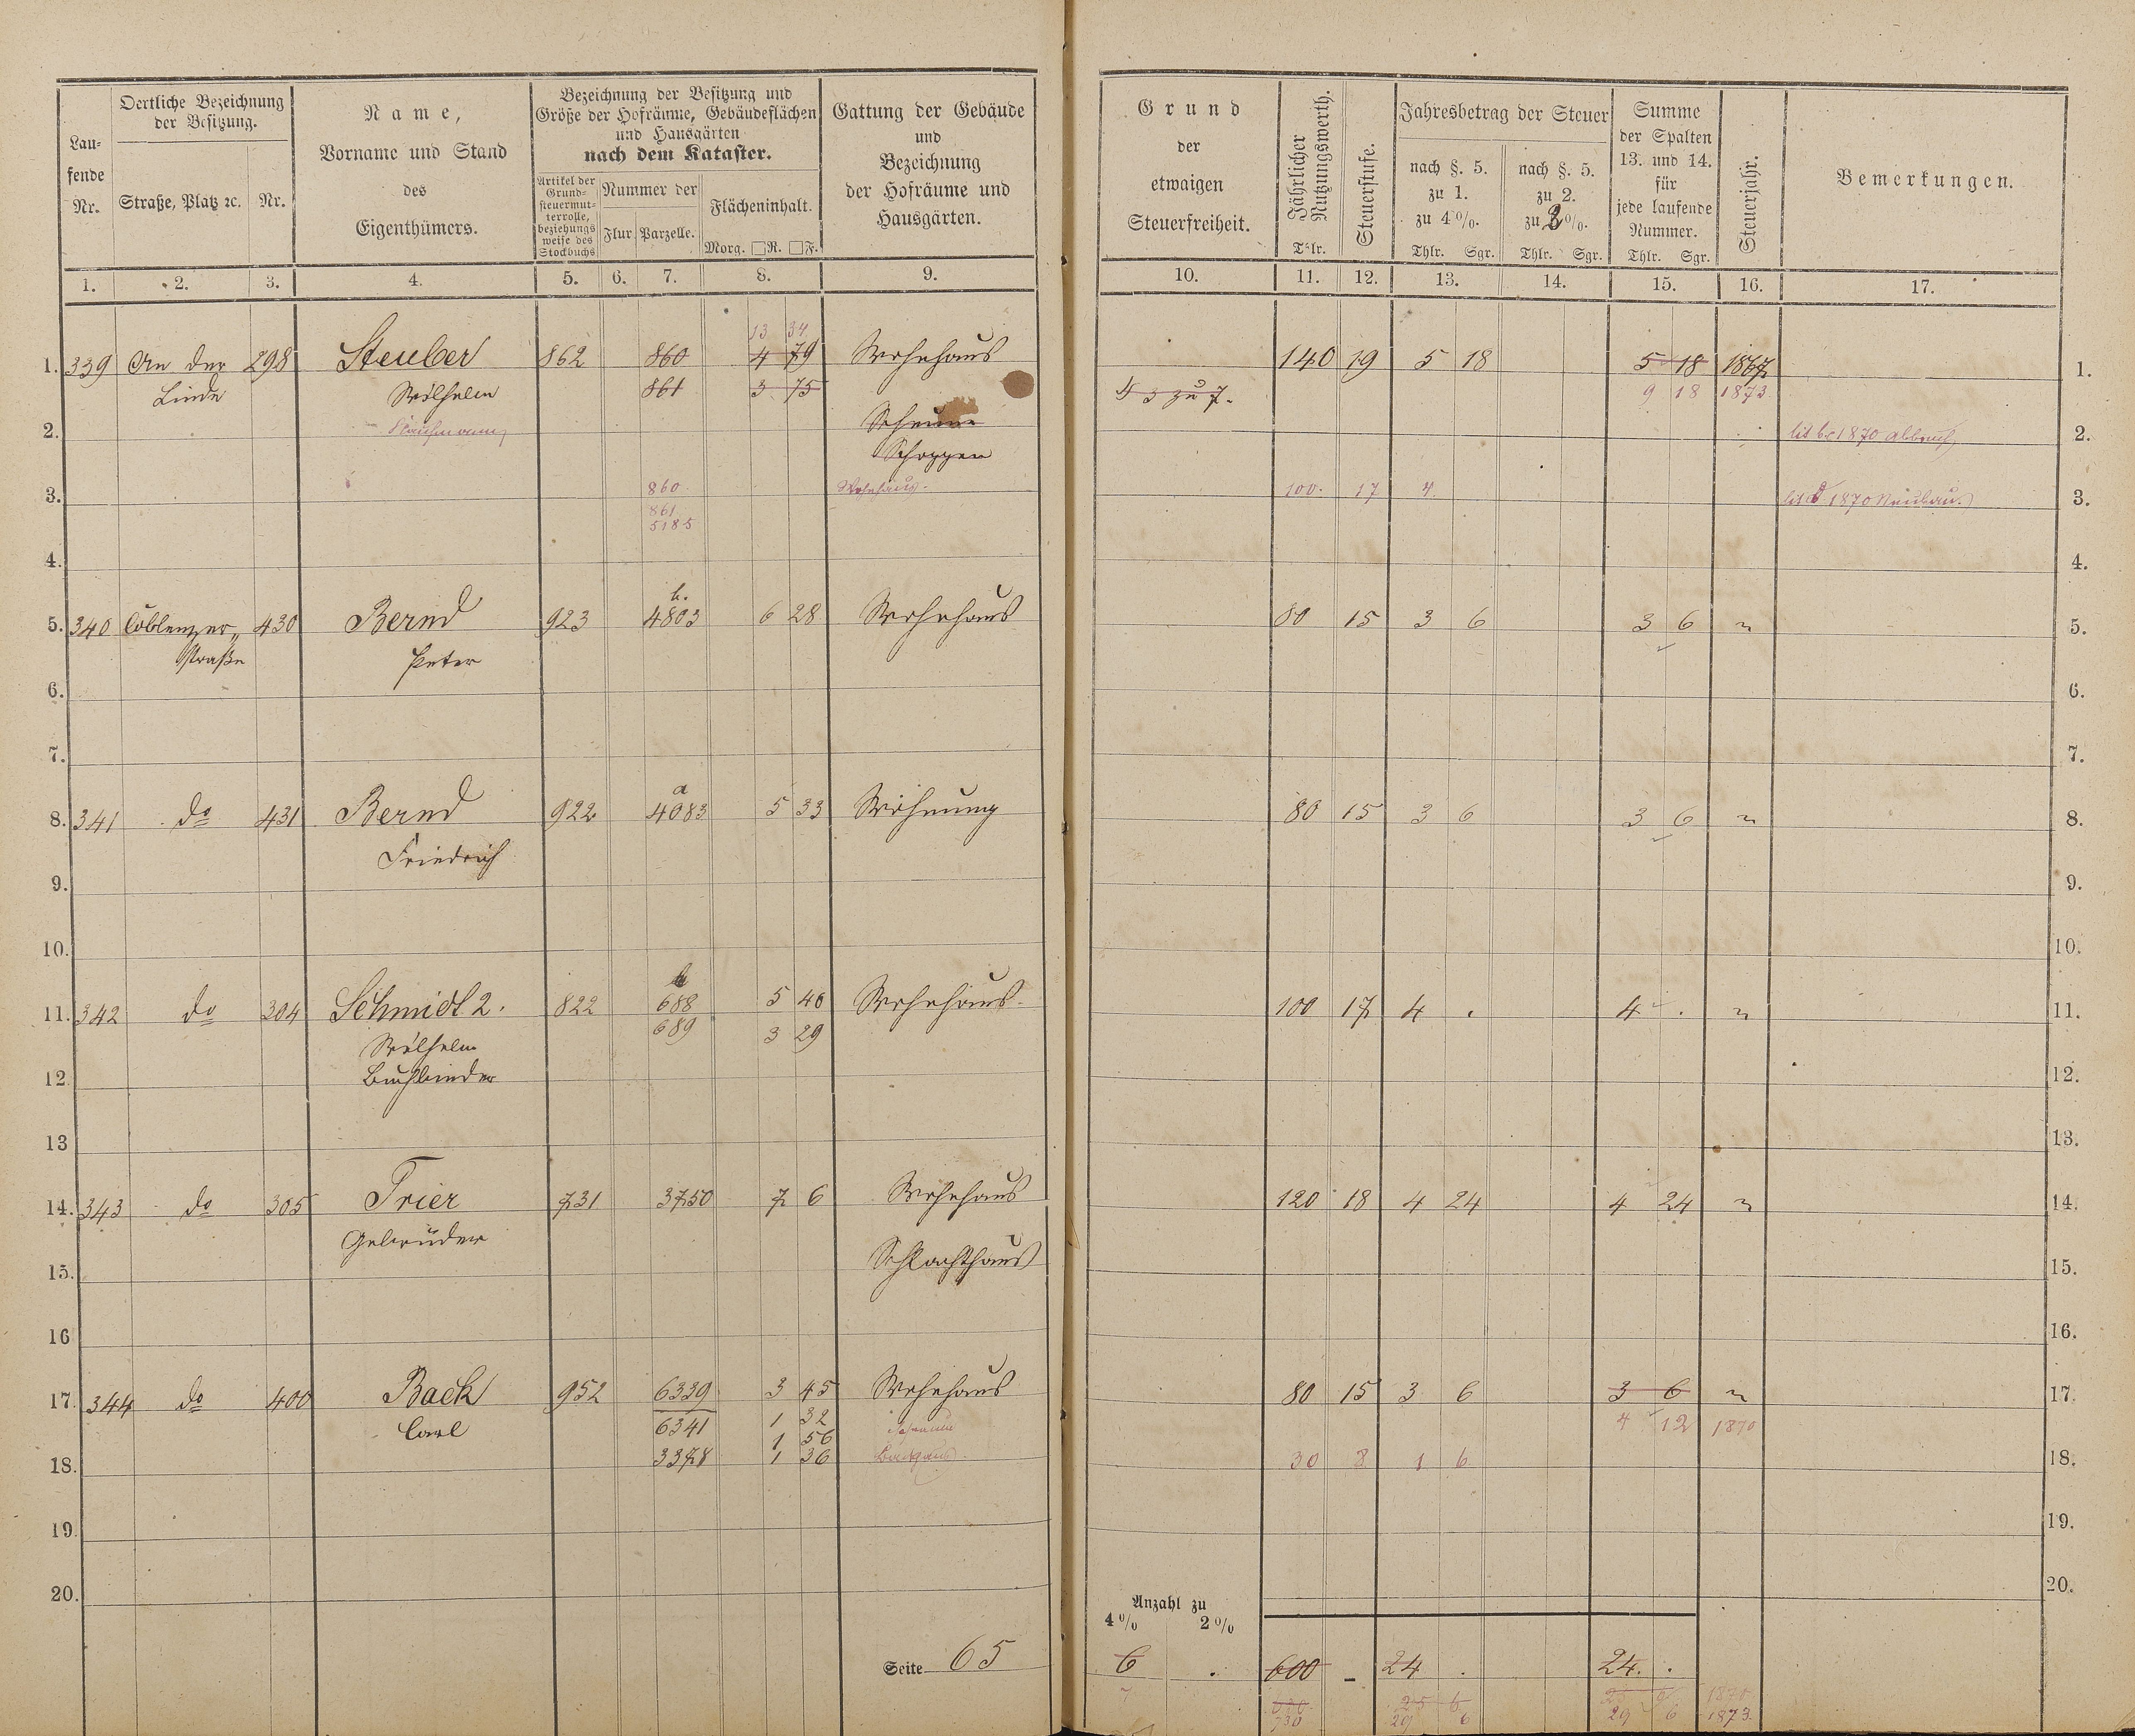 Oertliche Bezeichnung
der Besitzung.
Lau-
fende
Nr.
Straße, Platz ꝛc.
Nr.
Name,
Vorname und Stand
des
Eigenthümers.
Bezeichnung der Besitzung und
Größe der Hofräume, Gebäudeflächen
und Hausgärten
nach dem Kataster.
Artikel der
Grund-
steuermut-
terrolle,
beziehungs
weise des
Stockbuchs
Nummer der
Flur.
Parzelle.
Flächeninhalt.
Morg. □R. □F.
Gattung der Gebäude
und
Bezeichnung
der Hofräume und
Hausgärten.
1. 2. 3. 4. 5. 6. 7. 8. 9.
13 34
1. 339 An der 298 Steuber 862 860 4 79 Wohnhaus
Linde Wilhelm 861 3 75
2. Kaufmann Scheune
Schoppen
3. 860 Wohnhaus.
861
5185
4.
b.
5. 340 Coblenzer 430 Bernd 923 4803 6 28 Wohnhaus
straße Peter
6.
7.
a
8. 341 do 431 Bernd 922 4083 5 33 Wohnung
Friedrich
9.
10.
11. 342 do 304 Schmidt 2. 822 688 5 40 Wohnhaus.
Wilhelm 689 3 29
12. Buchbinder
13
14. 343 do 305 Trier 731 3750 7 6 Wohnhaus
Gebrüder Schlachthaus
15.
16
17. 344 do 400 Back 952 6339 3 45 Wohnhaus
Carl 6341 1 32 Scheune
1 56
18. 3378 1 36 Backhaus
19.
20.
Seite 65
Grund
der
etwaigen
Steuerfreiheit.
Jährlicher
Nutzungswerth.
Thlr.
Steuerstufe.
Jahresbetrag der Steuer
nach §. 5.
zu 1.
zu 4%.
Thlr. Sgr.
nach §. 5.
zu 2.
zu 2%.
Thlr. Sgr.
Summe
der Spalten
13. und 14.
für
jede laufende
Nummer.
Thlr. Sgr.
Steuerjahr.
Bemerkungen.
10. 11. 12. 13. 14. 15. 16. 17.
140 19 5 18 5 18 1867 1.
§ 3 zu 7. 9 18 1873.
lit b c 1870 Abbruch 2.
100. 17 4 lit d 1870 Neubau. 3.
4.
80 15 3 6 3 6 " 5.
6.
7.
80 15 3 6 3 6 " 8.
9.
10.
100 17 4 . 4 . " 11.
12.
13.
120 18 4 24 4 24 " 14.
15.
16.
80 15 3 6 3 6 " 17.
4 12 1870
30 8 1 6 18.
19.
20.
Anzahl zu
4% 2%
6 . 600 - 24 . 24. .
7 25 6 1870
730 29 6 29 6 1873.